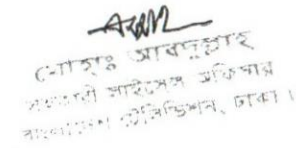 মোহাঃ আবদুল্লাহ
সহকারী সাইসেন্স অফিসার
বাংলাদেশ টেলিভিশন, ঢাকা।